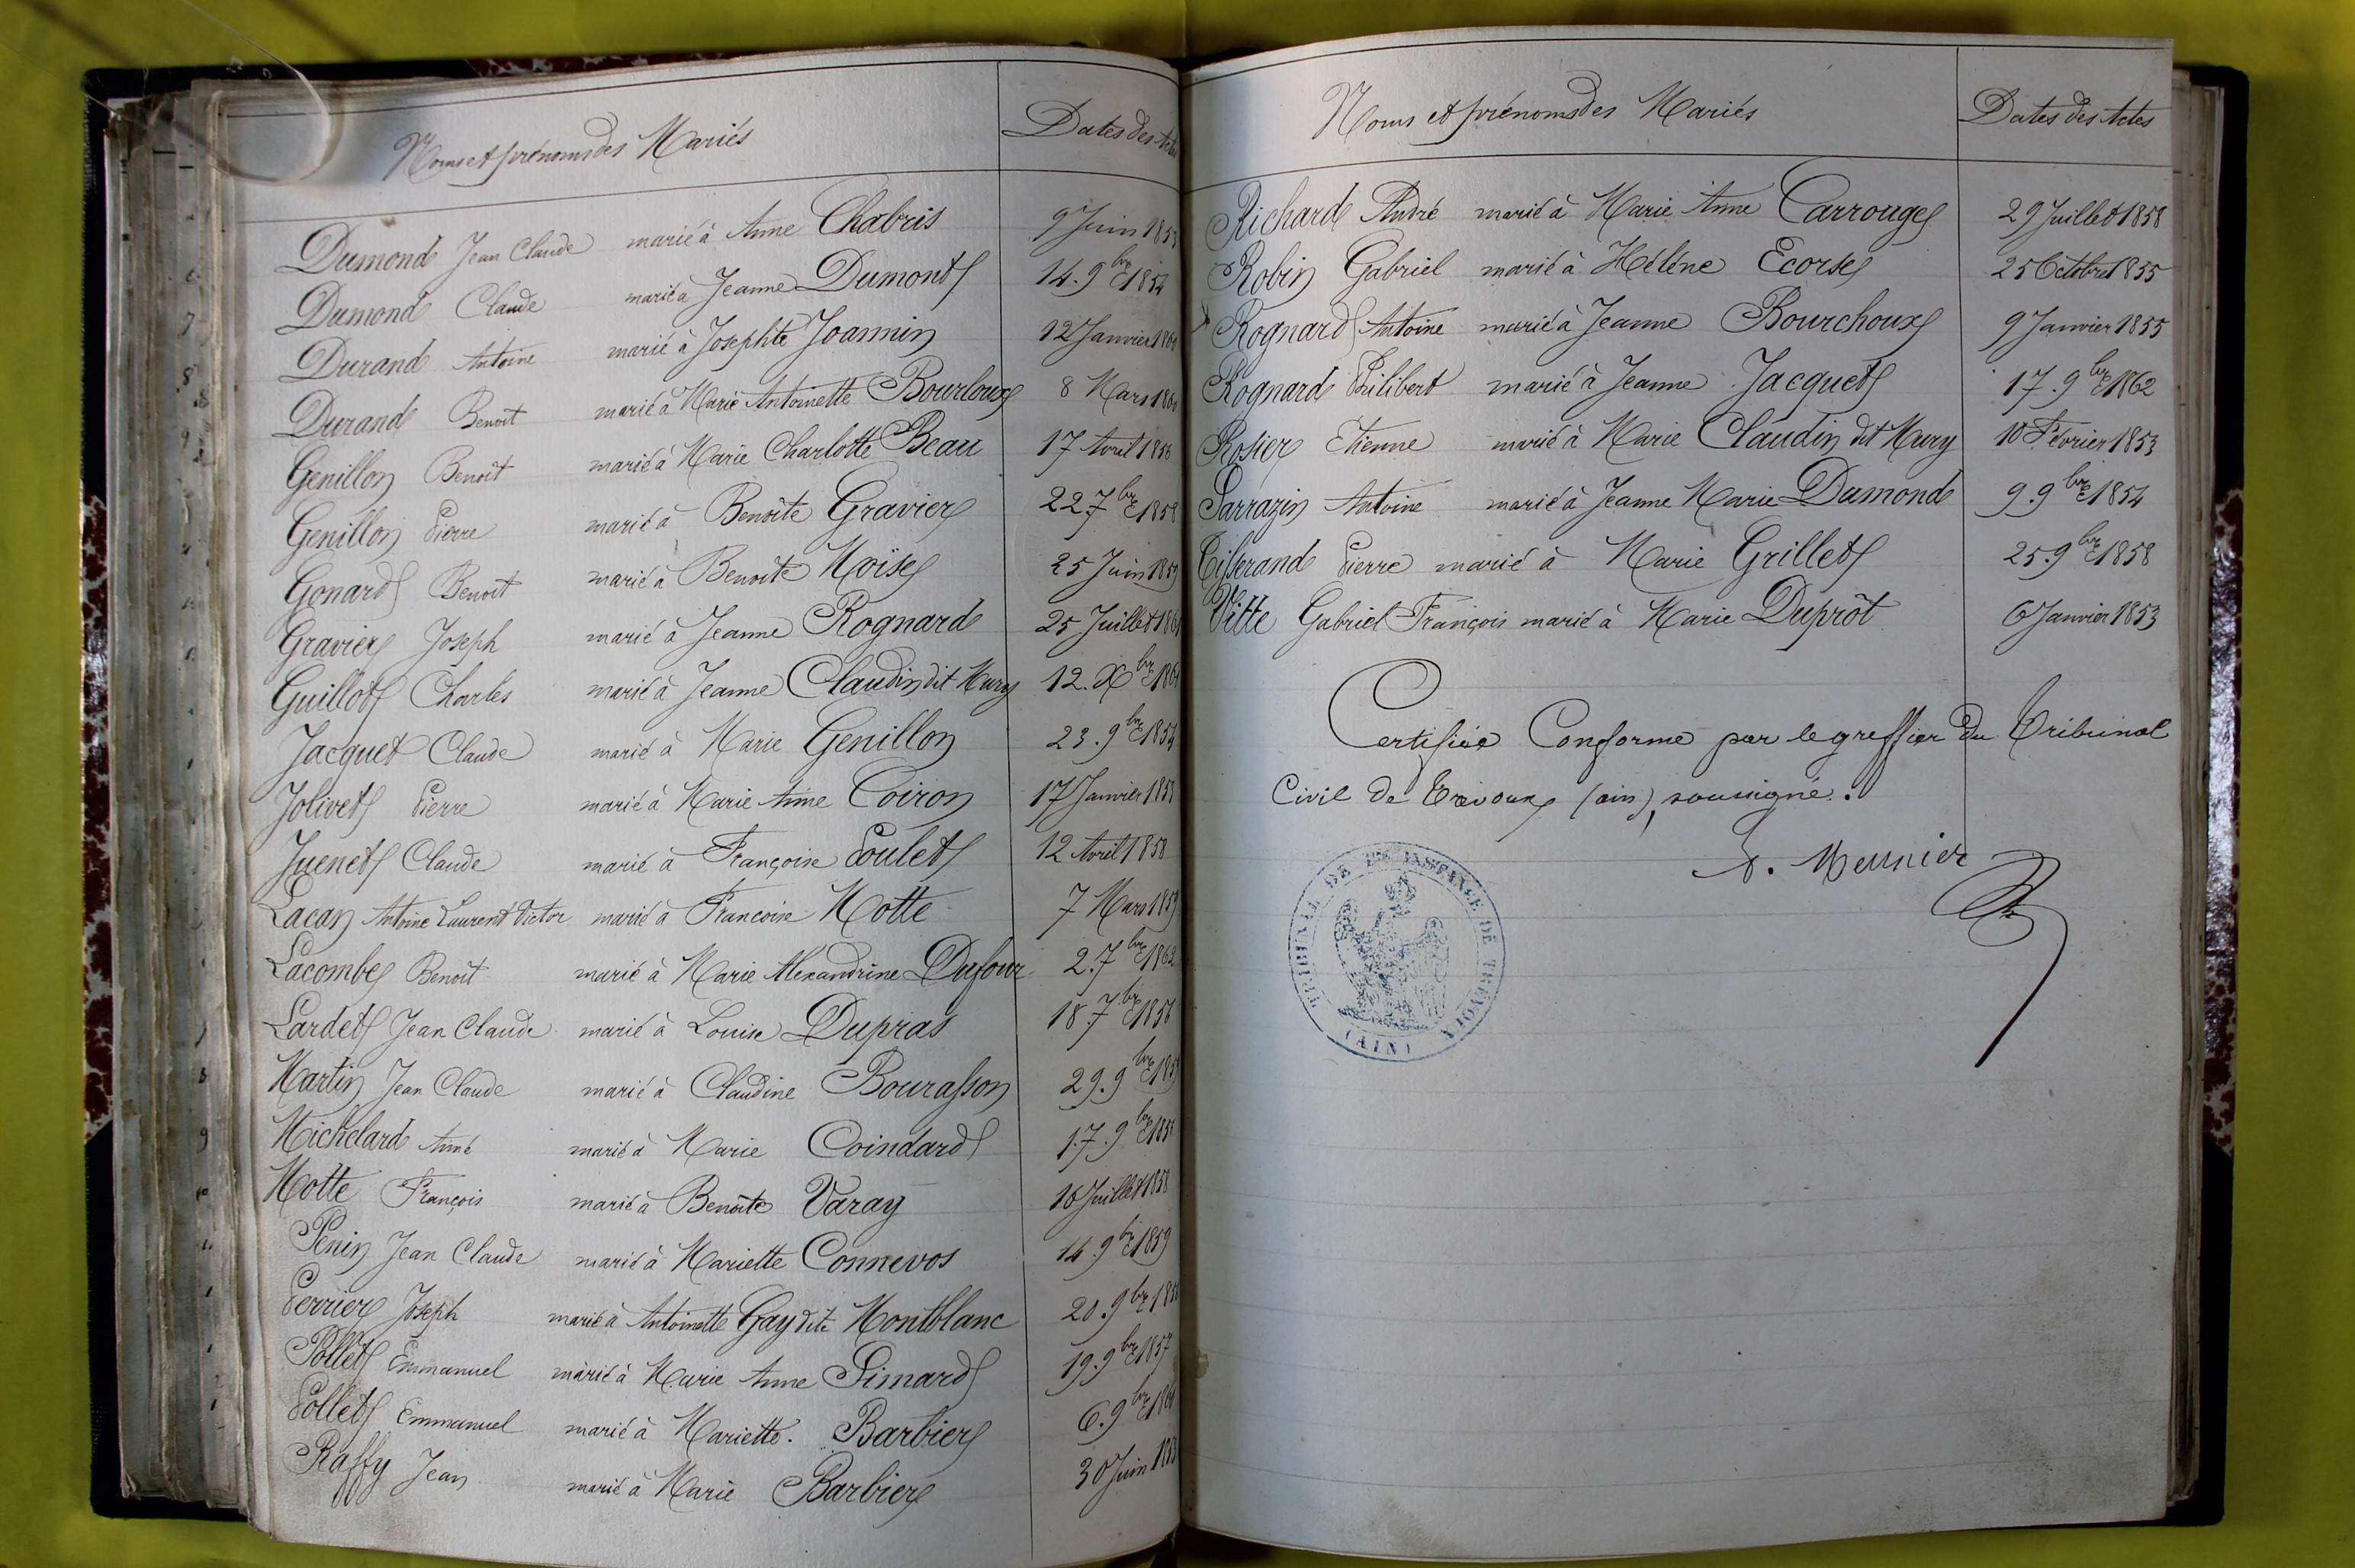 Noms et prénoms des Mariés Dates des Actes
Dumond Jean Claude marié à Anne Chabris 9 Juin 1853
Dumond Claude marié à Jeanne Dumont 14. 9bre 1854
Durand Antoine marié à Josephte Joannin 12 Janvier
Durand Benoît marié à Marie Antoinette Bourloux 8 Mars
Genillon Benoît marié à Marie Charlotte Beau 17 Avril 1858
Genillon Pierre marié à Benoîte Gravier 22. 7bre 1858
Gonard Benoît marié à Benoîte Moïse 25 Juin
Gravier Joseph marié à Jeanne Rognard 25 Juillet
Guillot Charles marié à Jeanne Claudin dit Mury 12. Xbre
Jacquet Claude marié à Marie Genillon 23. 9bre 1854
Jolivet Pierre marié à Marie Anne Coiron 17 Janvier
Juenet Claude marié à Françoise Poulet 12 Avril 1858
Lacan Antoine Laurent Victor marié à Françoise Motte 7 Mars 1859
Lacombe Benoît marié à Marie Alexandrine Dufour 2. 7bre 1862
Lardet Jean Claude marié à Louise Dupras 18. 7bre 1856
Martin Jean Claude marié à Claudine Bourasson 29. 9bre
Michelard Aimé marié à Marie Coindard 17. 9bre
Motte François marié à Benoîte Varay 10 Juillet 1858
Penin Jean Claude marié à Mariette Connevos 14. 9bre 1859
Perrier Joseph marié à Antoinette Gay dite Montblanc 20. 9bre
Pollet Emmanuel marié à Marie Anne Simard 19. 9bre 1857
Pollet Emmanuel marié à Mariette Barbier 6. 9bre
Raffy Jean marié à Marie Barbier 30 Juin
Noms et prénoms des Mariés Dates des Actes
Richard André marié à Marie Anne Carrouge 29 Juillet 1858
Robin Gabriel marié à Hélène Ecorse 25 Octobre 1855
Rognard Antoine marié à Jeanne Bourchoux 9 Janvier 1855
Rognard Philibert marié à Jeanne Jacquet 17. 9bre 1862
Rosier Etienne marié à Marie Claudin dit Mury 10 Février 1853
Sarrazin Antoine marié à Jeanne Marie Dumond 9. 9bre 1854
Tisserand Pierre marié à Marie Grillet 25. 9bre 1858
Vitte Gabriel François marié à Marie Duprôt 6 Janvier 1853
Certifiée Conforme par le greffier du Tribunal
Civil de Trévoux (ain), soussigné.
Meunier
TRIBUNAL DE 1RE INSTANCE DE TRÉVOUX
(AIN)